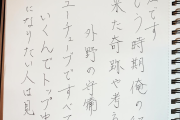 です
う時期俺の
来た奇跡や考え
外野の
ューチューブですべ
いくんでトップ
になりたい人は見